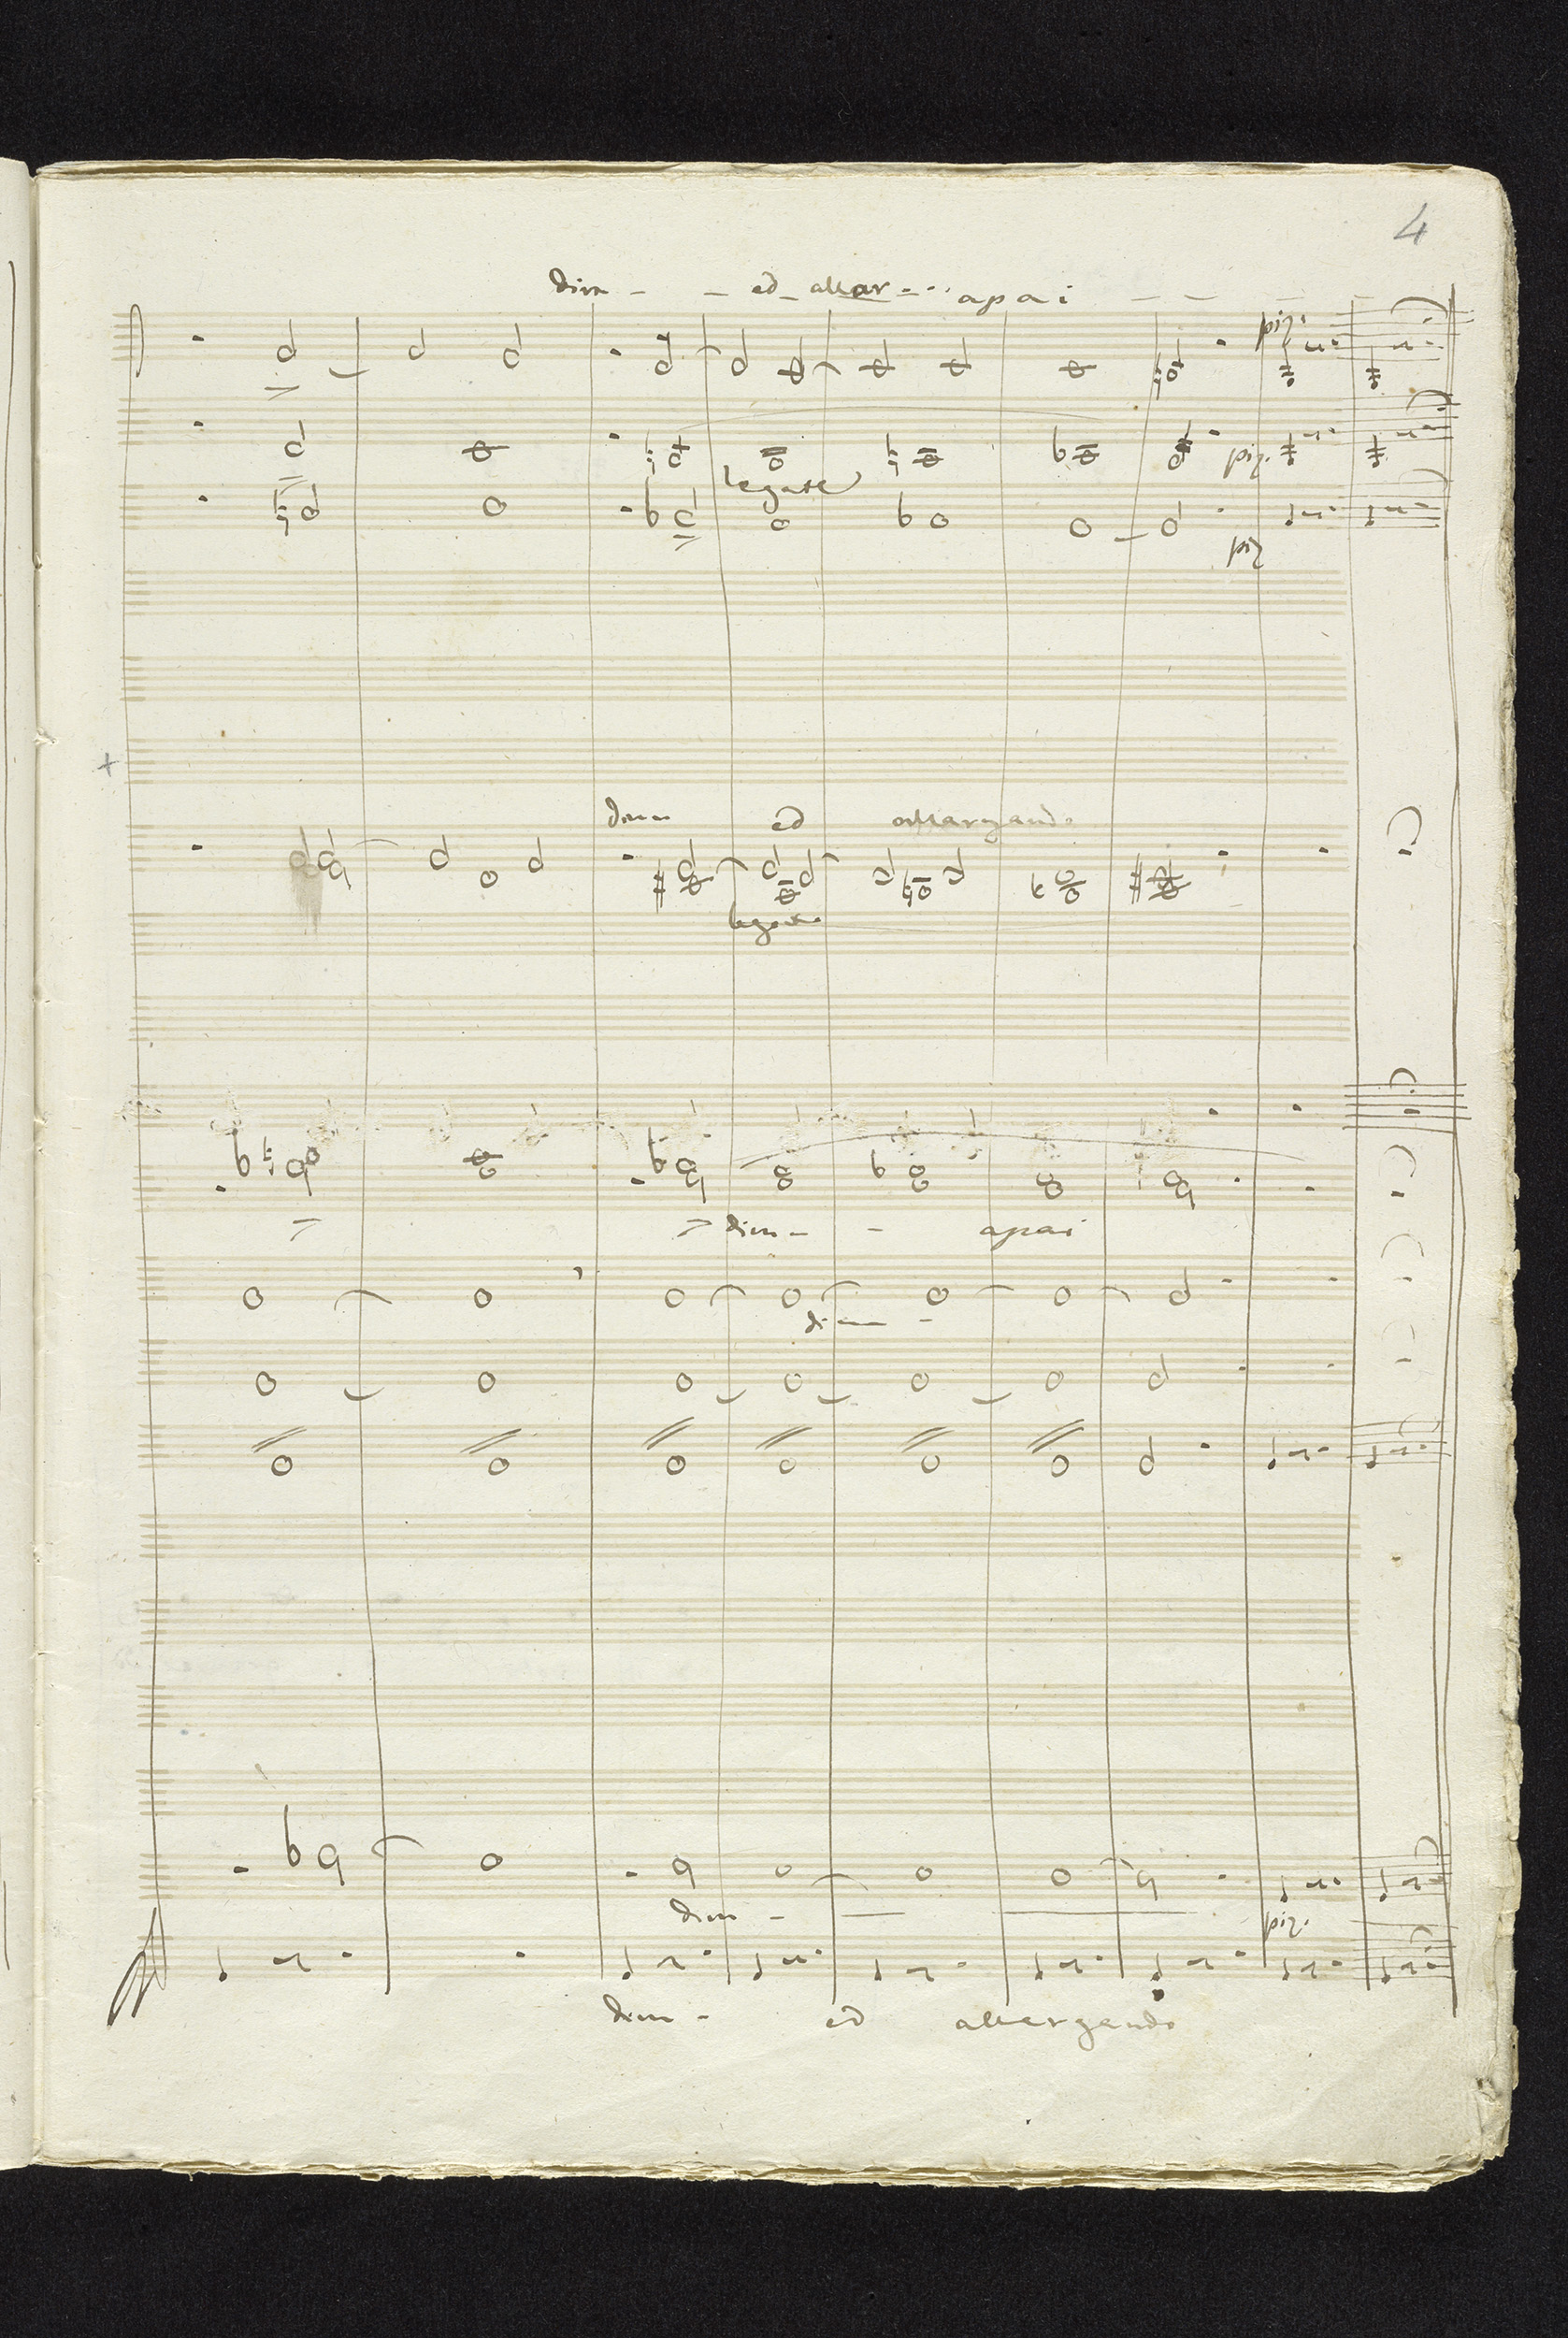 4
dim - - ed allar - - - apai - - - -
piz.
piz.
legate
piz
dim ed allargando
legate
dim - - apai
dim -
dim -
piz.
dim - ed allargando